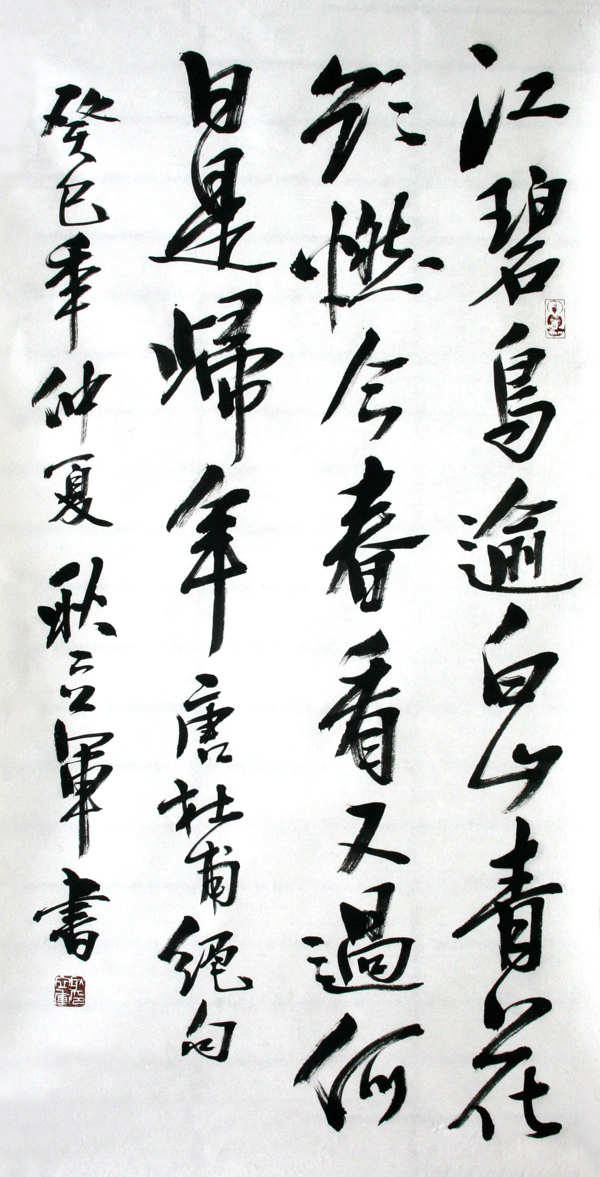 江碧鳥逾白山青花
欲燃今春看又過何
日是歸年 唐杜甫絕句
癸巳年仲夏 耿立軍書